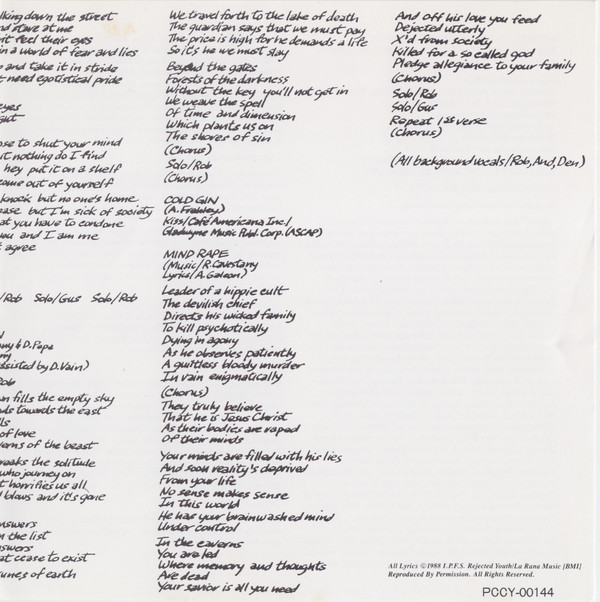 lking down the street
nd stare at me
n't feel their eyes
in a world of fear and lies
and take it in stride
t need egotistical pride
eyes
out
ose to shut your mind
it nothing do I find
hey put it on a shelf
come out of yourself
knock but no one's home
ease but I'm sick of society
at you have to condone
you and I am me
t agree
/Rob Solo/Gus Solo/Rob
ny & D. Pepa
ny
ssisted by D. Vain)
Rob
n fills the empty sky
ds towards the east
lls
of love
verns of the beast
reaks the solitude
who journey on
t horrifies us all
d blows and it's gone
nswers
n the list
nswers
at cease to exist
tunes of earth
We travel forth to the lake of death
The guardian says that we must pay
The price is high for he demands a life
So it's he we must slay
Beyond the gates
Forests of the darkness
Without the key you'll not get in
We weave the spell
Of time and dimension
Which plants us on
The shores of sin
(Chorus)
Solo/Rob
(Chorus)
COLD GIN
(A. Frehley)
Kiss/Café Americana Inc./
Gladwyne Music Publ. Corp. (ASCAP)
MIND RAPE
(Music/R. Cavestany
Lyrics/A. Galeon)
Leader of a hippie cult
The devilish chief
Directs his wicked family
To kill psychotically
Dying in agony
As he observes patiently
A guiltless bloody murder
In vain enigmatically
(Chorus)
They truly believe
That he is Jesus Christ
As their bodies are raped
Of their minds
Your minds are filled with his lies
And soon reality's deprived
From your life
No sense makes sense
In this world
He has your brainwashed mind
Under control
In the caverns
You are led
Where memory and thoughts
Are dead
Your savior is all you need
And off his love you feed
Dejected utterly
X'd from society
Killed for a so called god
Pledge allegiance to your family
(Chorus)
Solo/Rob
Solo/Gus
Repeat 1st verse
(Chorus)
(All background vocals/Rob, And, Den)
All Lyrics ©1988 I.P.F.S. Rejected Youth/La Rana Music [BMI]
Reproduced By Permission. All Rights Reserved.
PCCY-00144